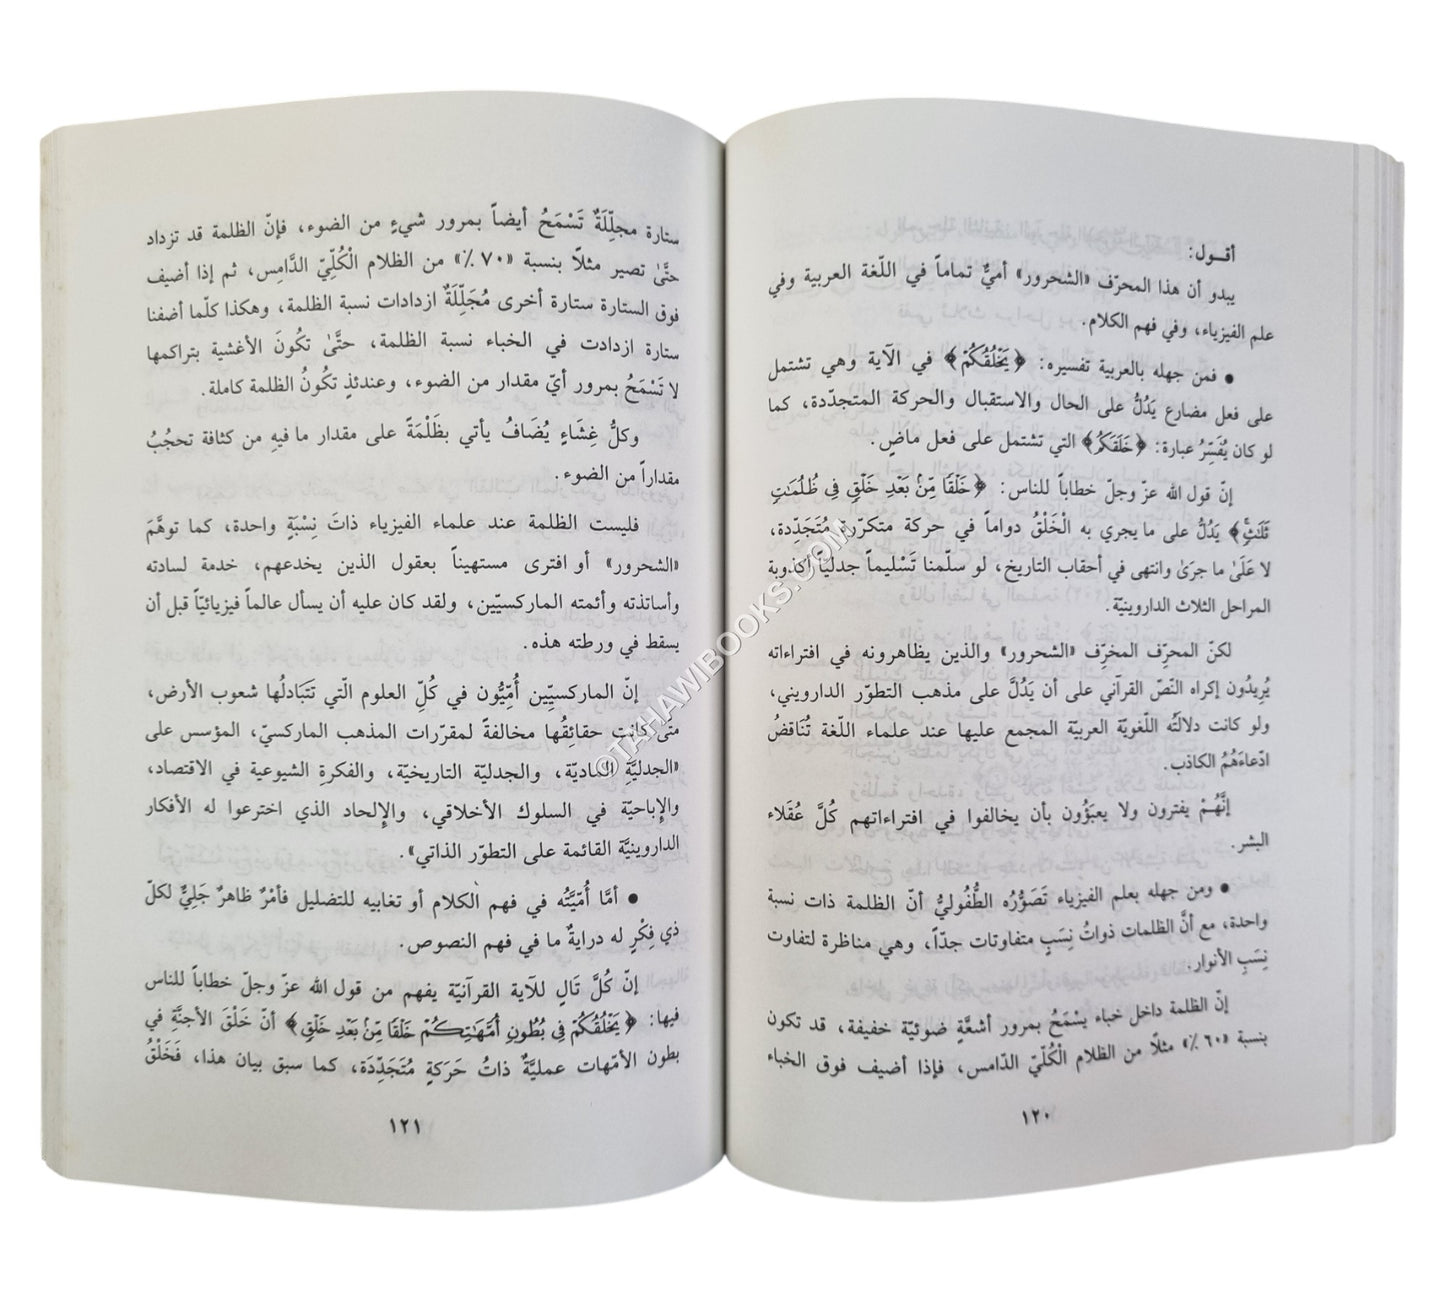 أقــول:
يبدو أن هذا المحرّف «الشحرور» أميٌّ تماماً في اللّغة العربية وفي
علم الفيزياء، وفي فهم الكلام.
• فمن جهله بالعربية تفسيره: ﴿يَخْلُقُكُمْ﴾ في الآية وهي تشتمل
على فعل مضارع يَدُلُّ على الحال والاستقبال والحركة المتجدّدة، كما
لو كان يُفَسِّرُ عبارة: ﴿خَلَقَكُمْ﴾ التي تشتمل على فعل ماضٍ.
إنّ قول الله عزّ وجلّ خطاباً للناس: ﴿خَلْقًا مِّنۢ بَعْدِ خَلْقٍ فِى ظُلُمَٰتٍ
ثَلَٰثٍ﴾ يَدُلُّ على ما يجري به الْخَلْقُ دواماً في حركة متكرّرة مُتَجَدِّدة،
لا عَلَىٰ ما جرىٰ وانتهى في أحقاب التاريخ، لو سلّمنا تَسْليماً جدليّاً أكذوبة
المراحل الثلاث الداروينيّة.
لكنّ المحرّف المخرّف «الشحرور» والذين يظاهرونه في افتراءاته
يُرِيدُون إكراه النّصّ القرآني على أن يَدُلَّ على مذهب التطوّر الدارويني،
ولو كانت دلالَتُه اللّغويّة العربيّة المجمع عليها عند علماء اللّغة تُنَاقضُ
ادّعاءَهُمُ الكاذب.
إنَّهُمْ يفترون ولا يعبَؤُون بأن يخالفوا في افتراءاتهم كُلَّ عُقَلاء
البشر.
• ومن جهله بعلم الفيزياء تَصَوُّرُه الطُّفُوليُّ أنّ الظلمة ذات نسبة
واحدة، مع أنَّ الظلمات ذواتُ نِسَبٍ متفاوتات جدّاً، وهي مناظرة لتفاوت
نِسَبِ الأنوار.
إنّ الظلمة داخل خباء يسْمَحُ بمرور أشعَّةٍ ضوئيّة خفيفة، قد تكون
بنسبة «٦٠ ٪» مثلًا من الظلام الْكُلّيّ الدّامس، فإذا أضيف فوق الخباء
١٢٠
ستارة مجلِّلَةٌ تَسْمَحُ أيضاً بمرور شيءٍ من الضوء، فإنّ الظلمة قد تزداد
حتَّىٰ تصير مثلًا بنسبة «٧٠ ٪» من الظلام الْكُلِّيّ الدَّامِس، ثم إذا أضيف
فوق الستارة ستارة أخرى مُجَلِّلَةٌ ازدادات نسبة الظلمة، وهكذا كلّما أضفنا
ستارة ازدادت في الخباء نسبة الظلمة، حتَّىٰ تكُونَ الأغشية بتراكمها
لا تَسْمَحُ بمرور أيّ مقدار من الضوء، وعندئذٍ تكُونُ الظلمة كاملة.
وكلُّ غِشَاءٍ يُضَافُ يأتي بظَلْمَةً على مقدار ما فيهِ من كثافة تحجُبُ
مقداراً من الضوء.
فليست الظلمة عند علماء الفيزياء ذاتَ نِسْبَةٍ واحدة، كما توهَّمَ
«الشحرور» أو افترى مستهيناً بعقول الذين يخدعهم، خدمة لسادته
وأساتذته وأئمته الماركسيّين، ولقد كان عليه أن يسأل عالماً فيزيائيّاً قبل أن
يسقط في ورطته هذه.
إنّ الماركسيِّين أُمِّيُّون في كُلِّ العلوم الّتي تتَبَادلُها شعوب الأرض،
متى كانت حقائِقُها مخالفةً لمقرّرات المذهب الماركسيّ، المؤسس على
«الجدليَّةِ الماديّة، والجدليّة التاريخيّة، والفكرةِ الشيوعية في الاقتصاد،
والإباحيّة في السلوك الأخلاقي، والإلحاد الذي اخترعوا له الأفكار
الداروينيَّة القائمة على التطوّر الذاتي».
• أمَّا أُمِّيَّتُه في فهم الكلام أو تغابيه للتضليل فأمْرٌ ظاهرٌ جَلِيٌّ لكلّ
ذي فِكْرٍ له درايةٌ ما في فهم النصوص.
إنّ كُلَّ تَالٍ للآية القرآنيّة يفهم من قول الله عزّ وجلّ خطاباً للناس
فيها: ﴿يَخْلُقُكُمْ فِى بُطُونِ أُمَّهَٰتِكُمْ خَلْقًا مِّنۢ بَعْدِ خَلْقٍ﴾ أنّ خَلْقَ الأجنَّةِ في
بطون الأمّهات عمليَّةٌ ذاتُ حَركةٍ مُتَجَدِّدَة، كما سبق بيان هذا، فَخَلْقُ
١٢١
©TAHAWIBOOKS.COM